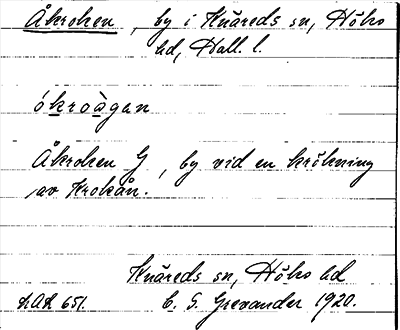 Åkroken, by i Knäreds sn, Höks
hd, Hall. l.
ókroàgan
Åkroken G, by vid en krökning
av Krokån.
Knäreds sn, Höks hd
LAL 651. C. G. Grevander 1920.